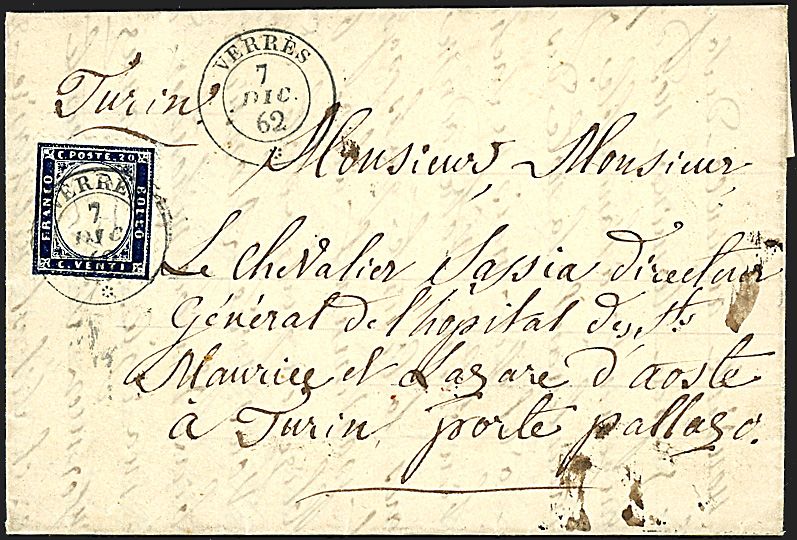 VERRES
7
DIC.
62
Turin
C. POSTE. 20
FRANCO
BOLLO
C. VENTI
VERRES
7
DIC
Monsieur, Monsieur
Le Chevalier Sassia directeur
Général de l'hôpital des Sts
Maurice et Lazare d'aoste
à Turin, porte pallazo.